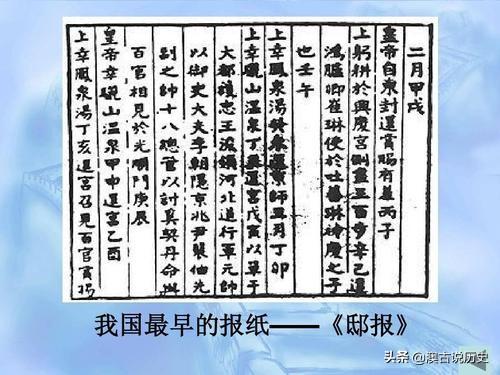 二月甲戌
皇帝自東封還賞賜有差丙子
上躬耕於興慶宮側盡三百步辛巳還
鴻臚卿崔琳使於吐蕃琳神慶之子
也壬午
上幸鳳泉湯癸未還京師五月丁卯
上幸驪山溫泉丁亥還宮戊寅以單于
大都護忠王浚領河北道行軍元帥
以御史大夫李朝隱京兆尹裴伷先
副之帥十八總管以討奚契丹命與
百官相見於光順門庚辰
皇帝幸驪山溫泉甲申還宮乙酉
上幸鳳泉湯丁亥還宮召見百官賞賜
我国最早的报纸——《邸报》
头条 @漠古说历史